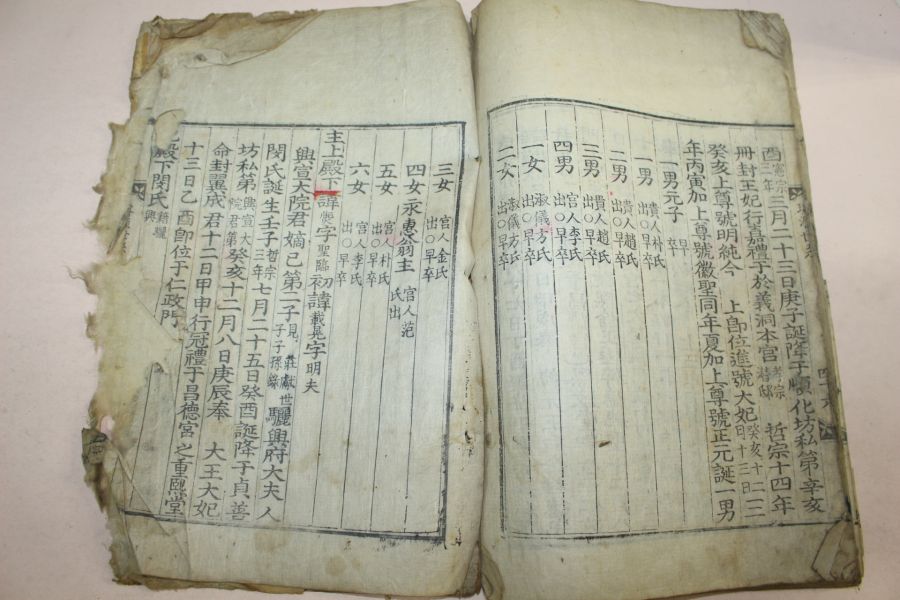 酉憲宗三年三月二十三日庚子誕降于順化坊私第辛亥
冊封王妃行嘉禮于於義洞本宮孝宗潛邸 哲宗十四年
癸亥上尊號明純今 上卽位進號大妃癸亥十二月十三日
年丙寅加上尊號徽聖同年夏加上尊號正元誕一男
一男元子早卒
一男貴人朴氏出○早卒
二男貴人趙氏出○早卒
三男貴人趙氏出○早卒
四男宮人李氏出○早卒
一女淑儀方氏出○早卒
二女淑儀方氏出○早卒
三女宮人金氏出○早卒
四女永惠翁主宮人范氏出
五女宮人朴氏出○早卒
六女宮人李氏出○早卒
主上殿下諱字聖臨初諱載晃字明夫
興宣大院君嫡己第二子見莊獻世子子孫錄驪興府大夫人
閔氏誕生壬子哲宗三年七月二十五日癸酉誕降于貞善
坊私第興宣大院君第癸亥十二月八日庚辰奉 大王大妃
命封翼成君十二日甲申行冠禮于昌德宮之重熙堂
十三日乙酉卽位于仁政門
殿下閔氏籍驪興